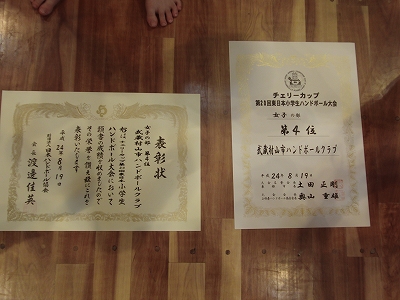 表彰状
女子の部 第4位
武蔵村山市ハンドボールクラブ
ハンドボール大会において
頭書の成績を収めましたので
その栄誉を讃え茲にこれを
表彰いたします
平成24年8月19日
財団法人 日本ハンドボール協会
会長 渡邊佳英
チェリーカップ
第20回東日本小学生ハンドボール大会
女子の部
第4位
武蔵村山市ハンドボールクラブ
平成24年8月19日
土田正剛
奥山重雄